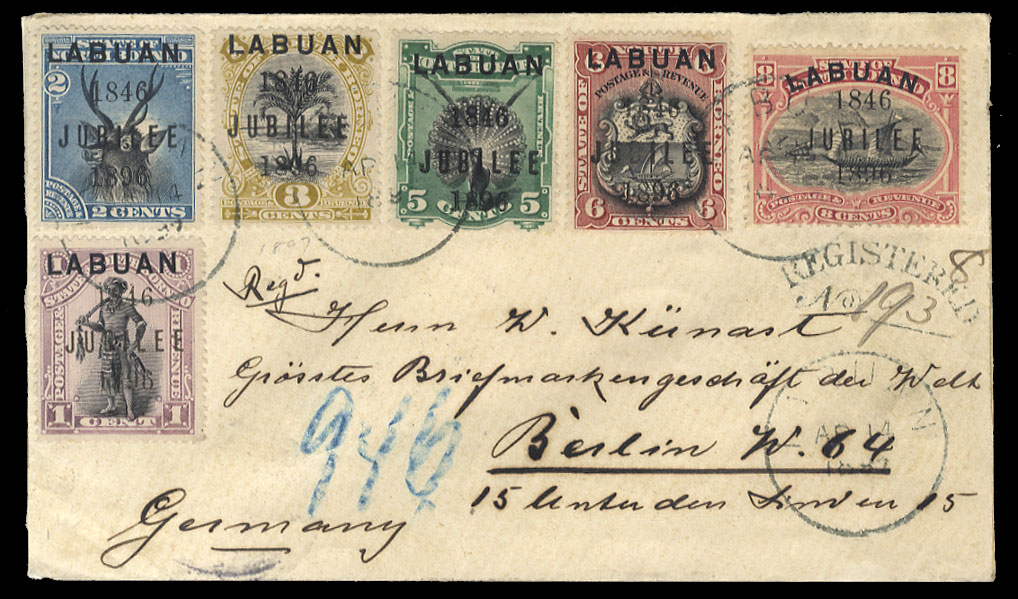 LABUAN
2
1846
JUBILEE
1896
POSTAGE & REVENUE
2 CENTS
LABUAN
1846
JUBILEE
1896
3
CENTS
LABUAN
POSTAGE
REVENUE
1846
JUBILEE
1896
5 CENTS 5
LABUAN
POSTAGE & REVENUE
1846
STATE OF NORTH BORNEO
JUBILEE
1896
6 CENTS 6
LABUAN
8 8
1846
JUBILEE
1896
POSTAGE & REVENUE
8 CENTS
LABUAN
1846
POSTAGE & REVENUE
JUBILEE
1896
1 CENT 1
1897
REGISTERED
8
No 193
Regd.
Herrn W. Künast
Grösstes Briefmarkengeschäft der Welt
Berlin W. 64
15 Unter den Linden 15
Germany
946
AP 14
1897